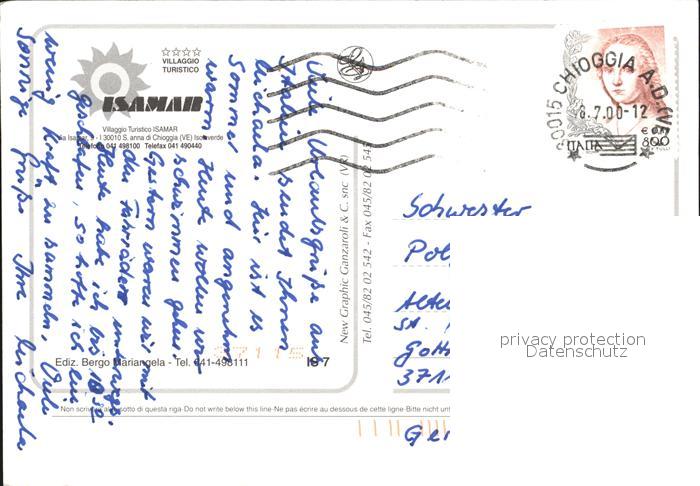 ☆☆☆☆
VILLAGGIO
TURISTICO
ISAMAR
Villaggio Turistico ISAMAR
Via Isamar, 9 - I 30010 S. anna di Chioggia (VE) Isolaverde
Telefono 041 498100 Telefax 041 490440
Viele Urlaubsgrüße aus
Italien sendet Ihnen
Michaela. Hier ist es
Sommer und angenehm
warm. Heute wollen wir
schwimmen gehen.
Gestern waren wir mit
den Fahrrädern unterwegs.
Heute habe ich bis 10
geschlafen, so hoffe ich ein
wenig Kraft zu sammeln. Viele
sonnige Grüße Ihre Michaela
Ediz. Bergo Mariangela - Tel. 041-498111
IS 7
37115
New Graphic Ganzaroli & C. snc (VR)
Tel. 045/82 02 542 - Fax 045/82 02 545
30015 CHIOGGIA A.D. (VE)
8.7.00-12
ITALIA
€
800
Schwester
Pol
Alten
St.
Gott
3711
Ger
privacy protection
Datenschutz
Non scrivere al disotto di questa riga-Do not write below this line-Ne pas écrire au dessous de cette ligne-Bitte nicht unt